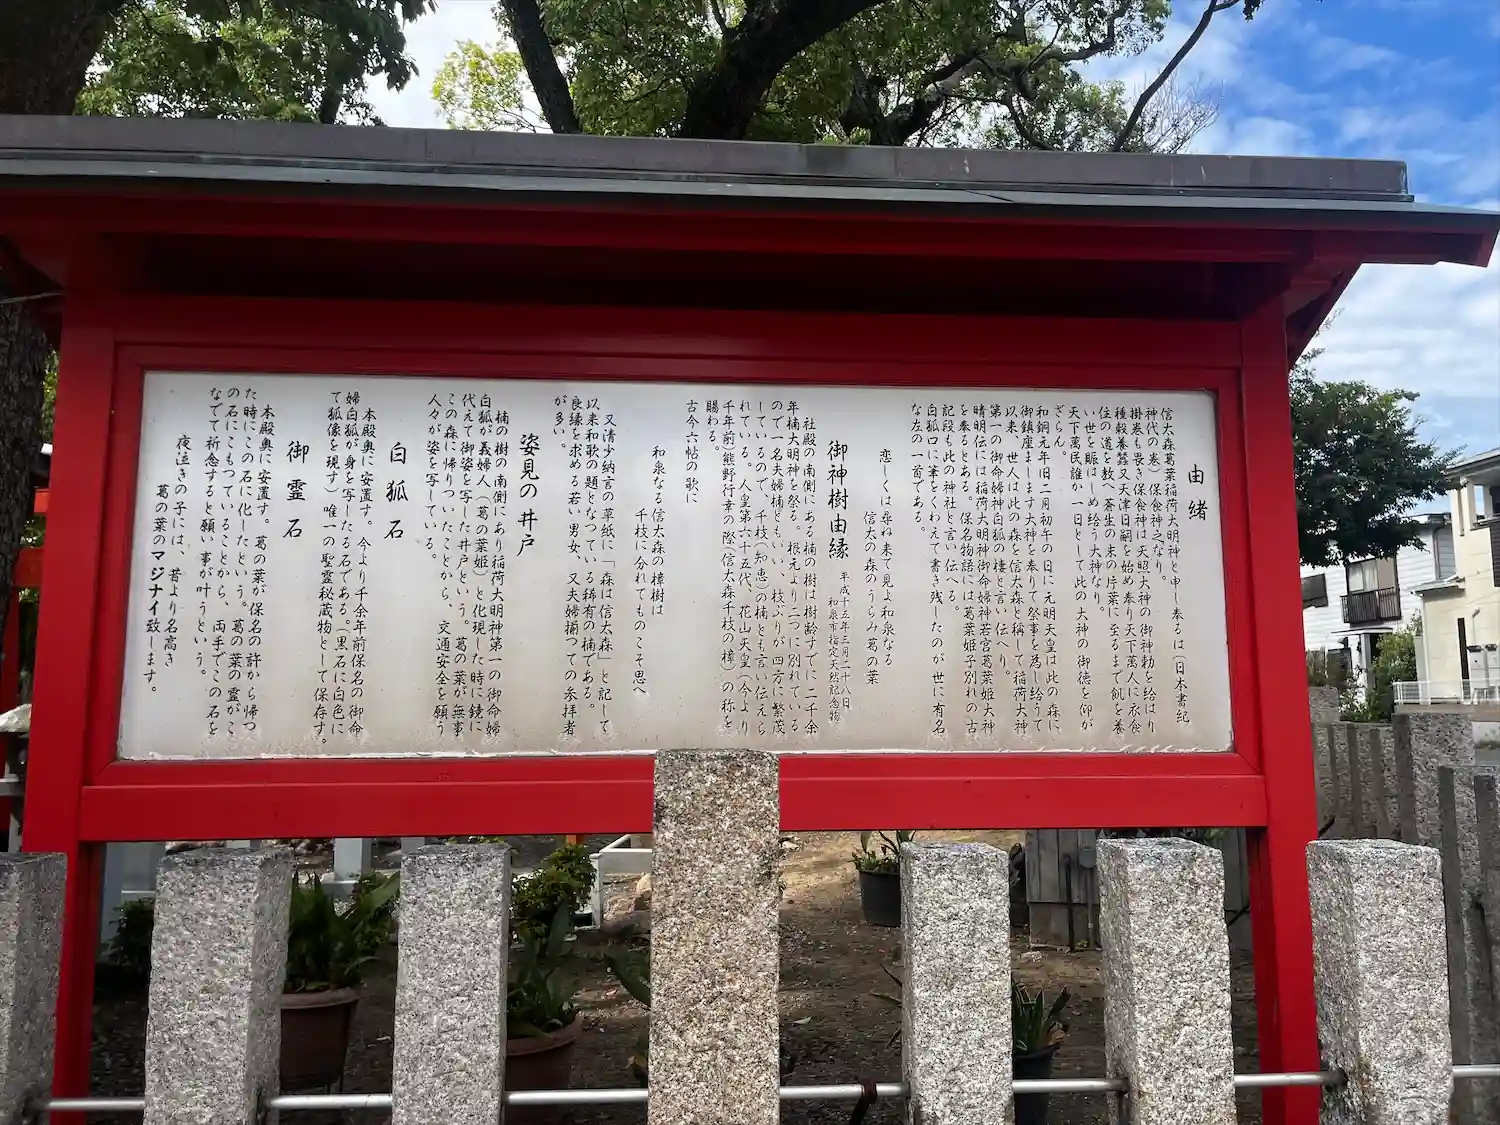 由緒
信太森葛葉稲荷大明神と申し奉るは（日本書紀
神代の巻）保食神之なり。
掛巻も畏き保食神は天照大神の御神勅を給はり
種穀養蚕又天津日嗣を始め奉り天下萬人に衣食
住の道を教へ蒼生の末の片葉に至るまで飢を養
い世を賑はしめ給う大神なり。
天下萬民誰か一日として此の大神の御徳を仰が
ざらん。
和銅元年旧二月初午の日に元明天皇は此の森に
御鎮座まします大神を奉りて祭事を為し給うて
以来、世人は此の森を信太森と稱して稲荷大神
第一の御命婦神白狐の棲と言い伝へり。
晴明伝には稲荷大明神御命婦神若宮葛葉姫大神
を奉るとある。保名物語には葛葉姫子別れの古
記段も此の神社と言い伝へる。
白狐口に筆をくわえて書き残したのが世に有名
な左の一首である。
恋しくは尋ね来て見よ和泉なる
信太の森のうらみ葛の葉
御神樹由縁
平成十五年三月二十八日
和泉市指定天然記念物
社殿の南側にある楠の樹は樹齢すでに二千余
年楠大明神を祭る。根元より二つに別れている
ので一名夫婦楠ともいい、枝ぶりが四方に繁茂
しているので、千枝（知恵）の楠とも言い伝えら
れている。人皇第六十五代、花山天皇（今より
千年前）熊野行幸の際（信太森千枝の樟）の称を
賜わる。
古今六帖の歌に
和泉なる信太森の樟樹は
千枝に分れてものこそ思へ
又清少納言の草紙に「森は信太森」と記して
以来和歌の題となつている稀有の楠である。
良縁を求める若い男女、又夫婦揃つての参拝者
が多い。
姿見の井戸
楠の樹の南側にあり稲荷大明神第一の御命婦
白狐が義婦人（葛の葉姫）と化現した時に鏡に
代えて御姿を写した井戸という。葛の葉が無事
この森に帰りついたことから、交通安全を願う
人々が姿を写している。
白狐石
本殿奥に安置す。今より千余年前保名の御命
婦白狐が身を写したる石である。（黒石に白色に
て狐像を現す）唯一の聖霊秘蔵物として保存す。
御霊石
本殿奥に安置す。葛の葉が保名の許から帰つ
た時にこの石に化したという。葛の葉の霊がこ
の石にこもつていることから、両手でこの石を
なでて祈念すると願い事が叶うという。
夜泣きの子には、昔より名高き
葛の葉のマジナイ致します。